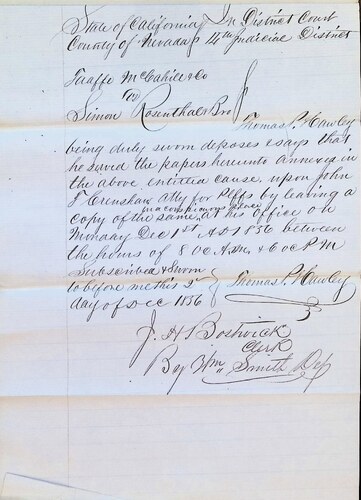 State of California } In District Court
County of Nevada } 14th Judicial District
Taaffe McCahill & Co
vs
Simon Rosenthal & Bro }
Thomas P. Hawley
being duly sworn deposes & says that
he served the papers hereunto annexed in
the above entitled cause, upon John
T Crenshaw atty for Plffs by leaving a
in a conspicuous place
copy of the same, at his office on
Monday Dec 1st AD 1856 between
the hours of 8 O.C. A.m. & 6 oc P.M
Subscribed & Sworn
to before me this 2d } Thomas P. Hawley
day of Dec 1856
J. H. Bostwick
Clerk
By Wm Smith Dep